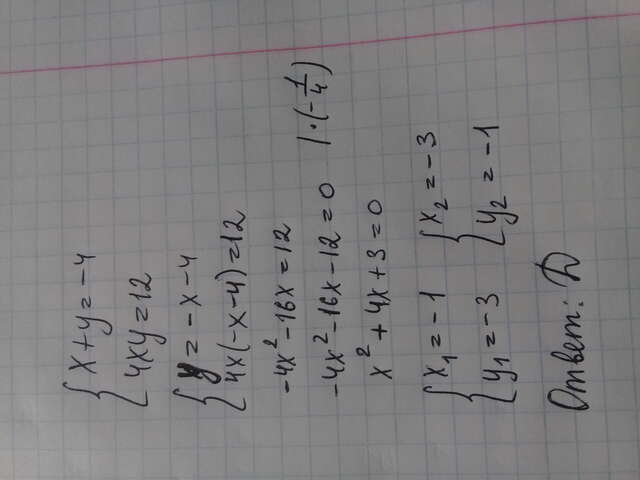 { x + y = -4
{ 4xy = 12
{ y = -x - 4
{ 4x(-x-4) = 12
-4x² - 16x = 12
-4x² - 16x - 12 = 0 | · (-1/4)
x² + 4x + 3 = 0
{ x₁ = -1 { x₂ = -3
{ y₁ = -3 { y₂ = -1
Ответ: D